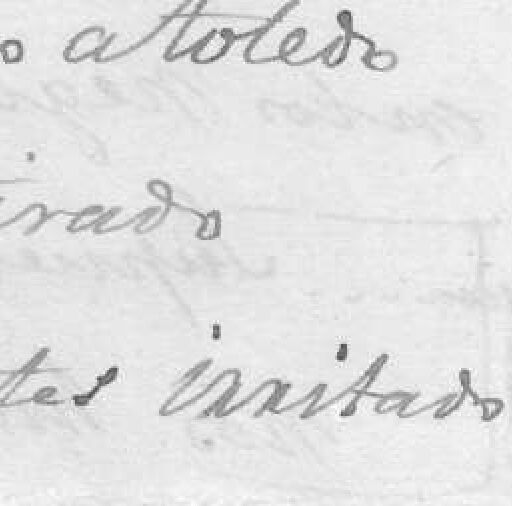 o a Toledo
irado
tes invitado